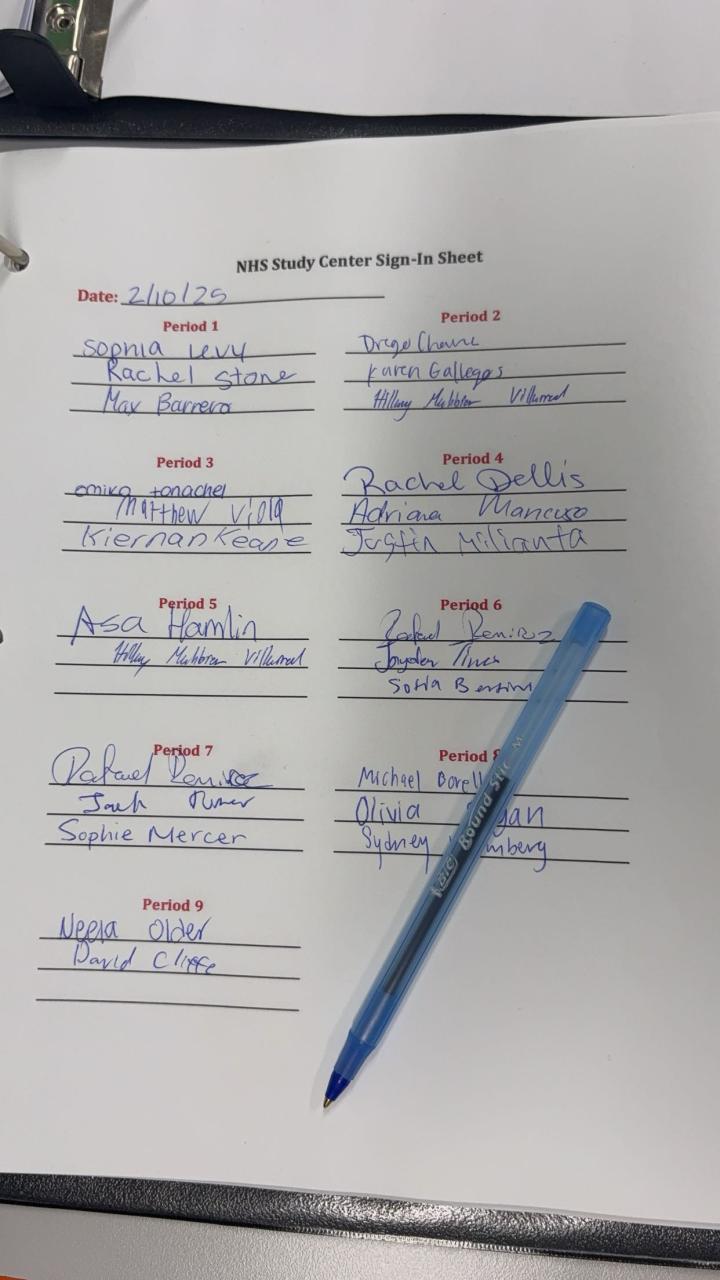 NHS Study Center Sign-In Sheet
Date: 2/10/25
Period 1
Sophia Levy
Rachel Stone
Max Barrera
Period 2
Karen Gallegos
Hillary Villarreal
Period 3
tonachel
Matthew Viola
Kiernan Keane
Period 4
Rachel Dellis
Adriana Mancuso
Justin Milianta
Period 5
Asa Hamlin
Hillary Villarreal
Period 6
Rafael Ramirez
Jayden
Sofia
Period 7
Rafael Ramirez
Sophie Mercer
Period
Michael
Olivia
Sydney
Period 9
Neela Older
David
BIC Round Stic M